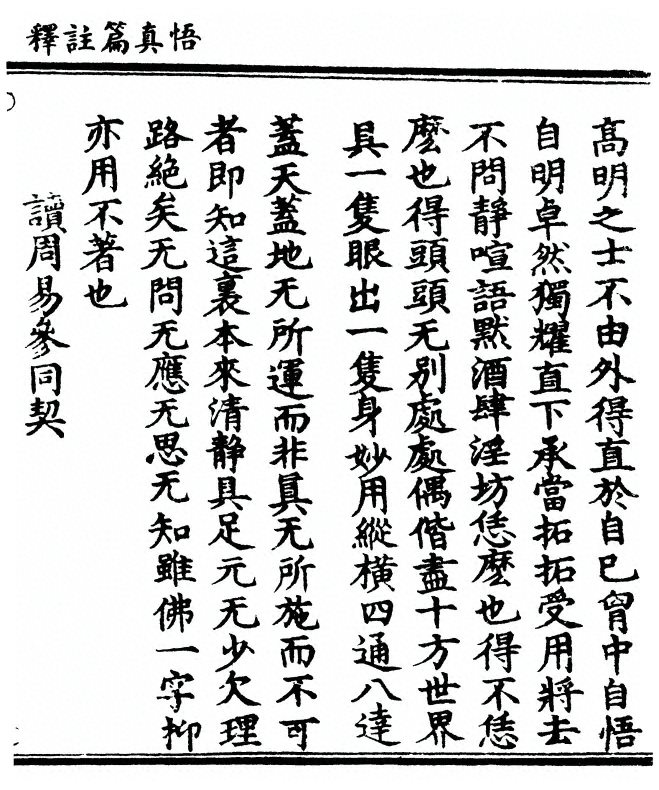 悟真篇註釋
髙明之士不由外得直於自已胷中自悟
自明卓然獨耀直下承當拓拓受用將去
不問靜喧語默酒肆淫坊恁麽也得不恁
麽也得頭頭无別處處偶偕盡十方世界
具一隻眼出一隻身妙用縱橫四通八達
蓋天蓋地无所運而非眞无所施而不可
者即知這裏本來清靜具足元无少欠理
路絶矣无問无應无思无知雖佛一字抑
亦用不著也
讀周易參同契